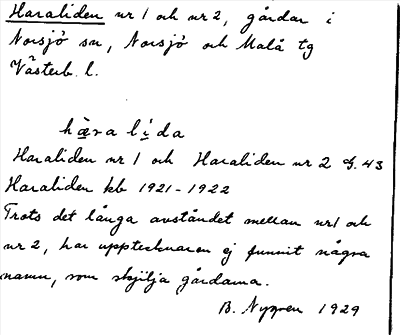 Haraliden nr 1 och nr 2, gårdar i
Norsjö sn, Norsjö och Malå tg
Västerb. l.
hàra lí da
Haraliden nr 1 och Haraliden nr 2 G. 43
Haraliden kb 1921-1922
Trots det långa avståndet mellan nr 1 och
nr 2, har upptecknaren ej funnit några
namn, som skilja gårdarna.
B. Nygren 1929